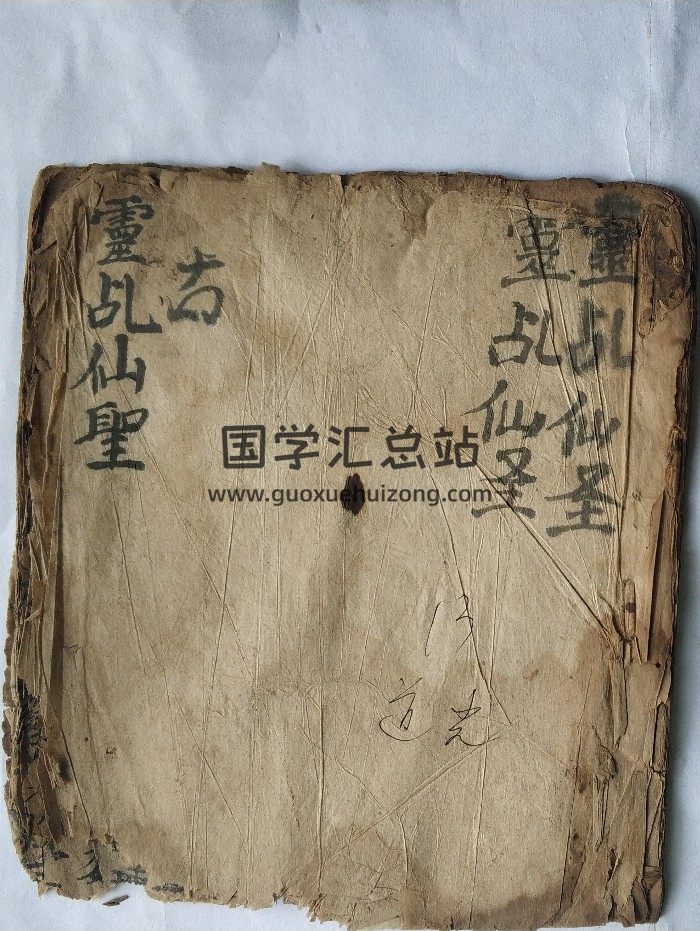 靈乩仙圣
靈乩仙圣
古
靈乩仙聖
国学汇总站
www.guoxuehuizong.com
13
道光